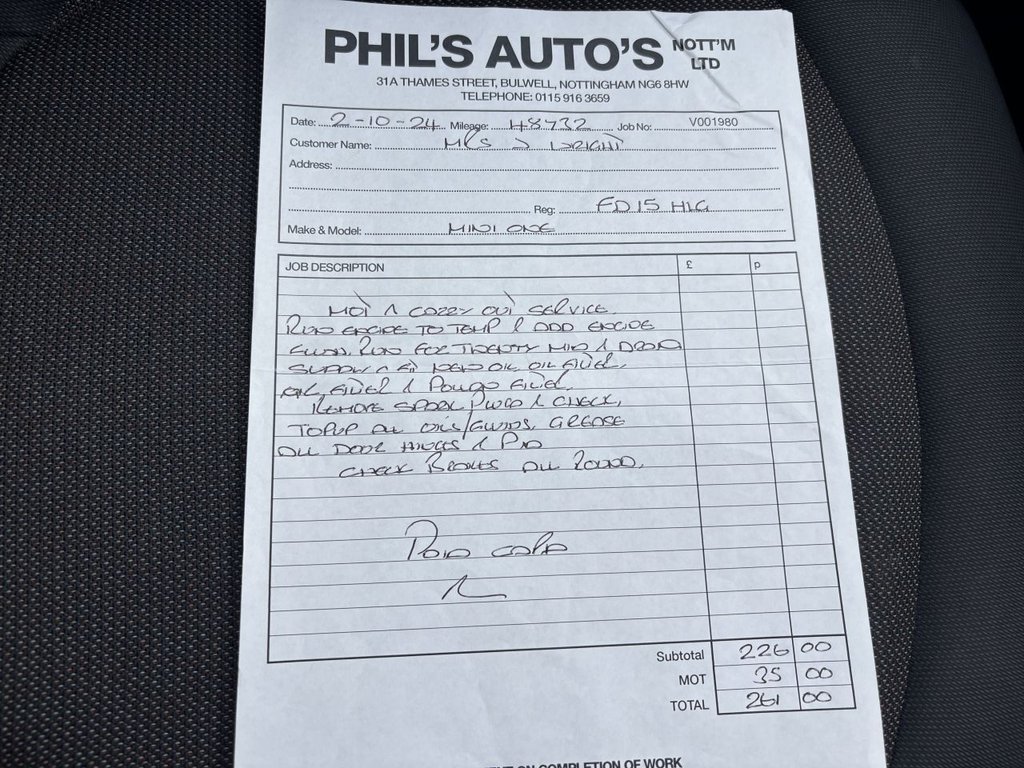 PHIL'S AUTO'S NOTT'M LTD
31A THAMES STREET, BULWELL, NOTTINGHAM NG6 8HW
TELEPHONE: 0115 916 3659
Date: 2-10-24 Mileage: 48732 Job No: V001980
Customer Name: MRS J WRIGHT
Address:
Reg: FD15 HLG
Make & Model: MINI ONE
JOB DESCRIPTION £ p
MOT & CARRY OUT SERVICE.
RUN ENGINE TO TEMP & ADD ENGINE
FLUSH. RUN FOR TWENTY MIN & DRAIN
SUPPLY & FIT NEW OIL OIL FILTER,
AIR FILTER & POLLEN FILTER.
REMOVE SPARK PLUGS & CHECK,
TOPUP ALL OILS/FLUIDS, GREASE
ALL DOOR HINGES & PIN
CHECK BRAKES ALL ROUND.
PAID CARD
Subtotal 226 00
MOT 35 00
TOTAL 261 00
ON COMPLETION OF WORK